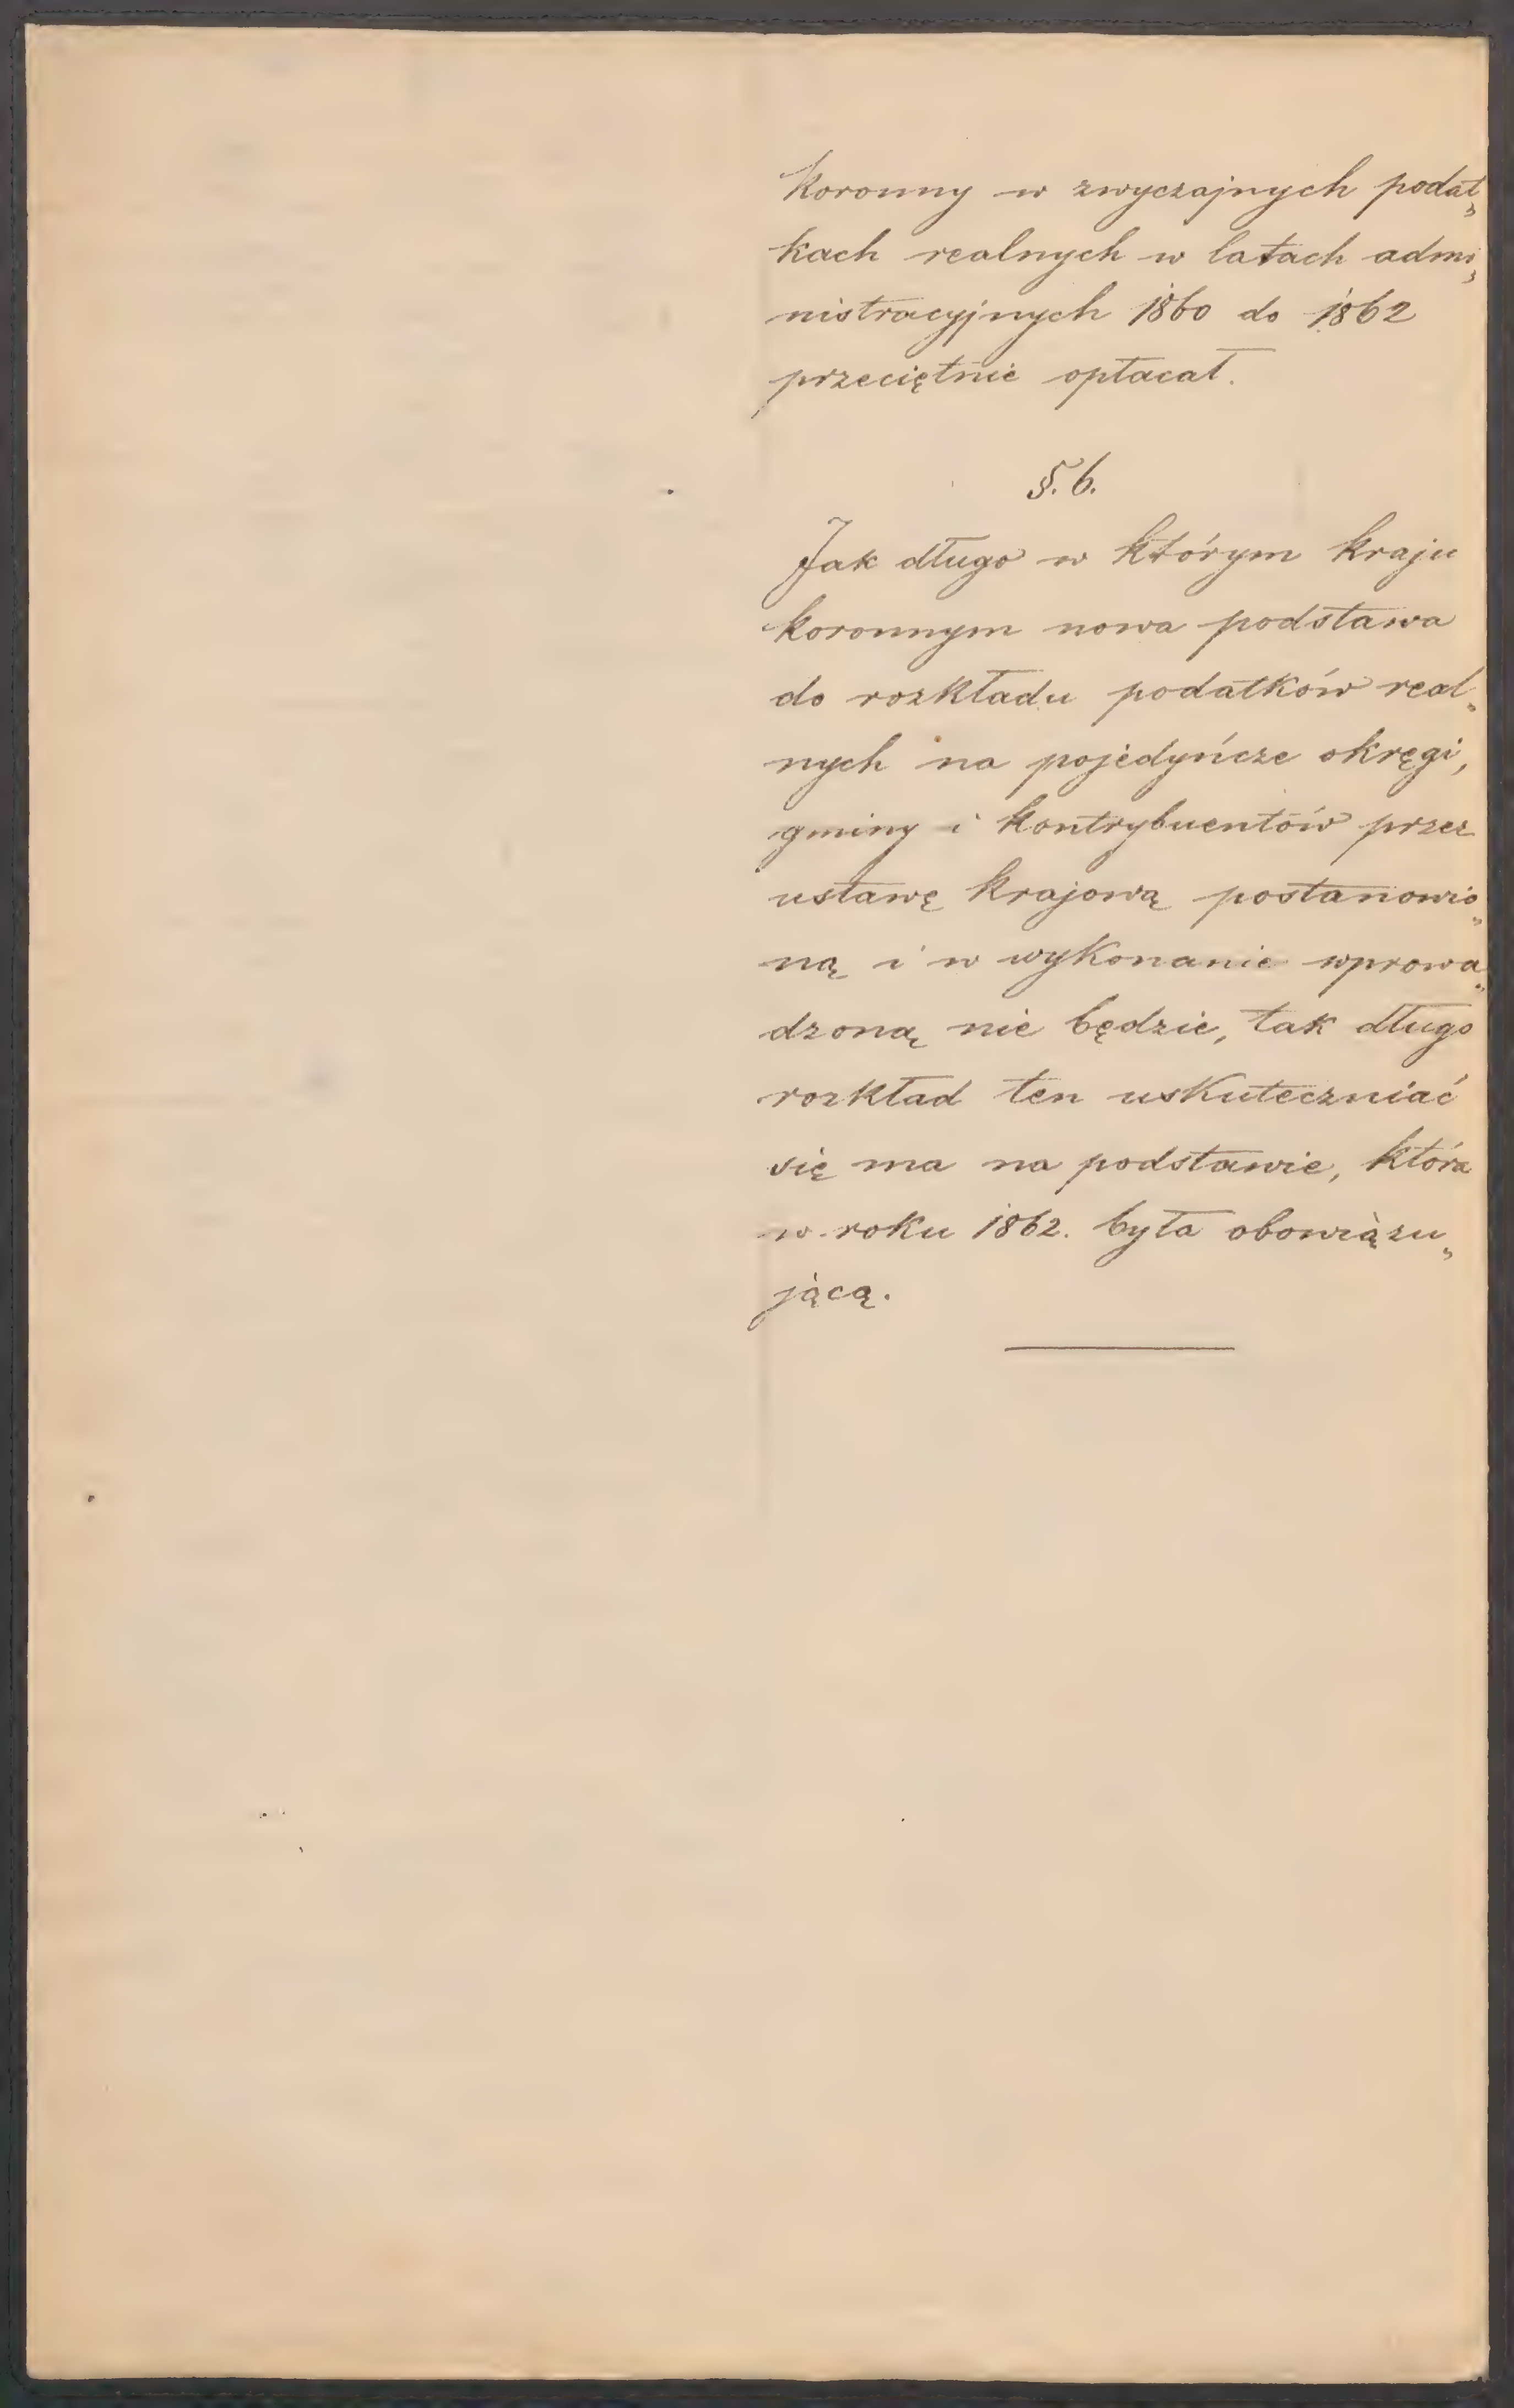 koronny w zwyczajnych podat„
kach realnych w latach admi„
nistracyjnych 1860 do 1862
przeciętnie opłacał.
§. 6.
Jak długo w którym kraju
koronnym nowa podstawa
do rozkładu podatków real„
nych na pojedyńcze okręgi,
gminy i kontrybuentów przez
ustawę krajową postanowio„
ną i w wykonanie wprowa„
dzoną nie będzie, tak długo
rozkład ten uskuteczniać
się ma na podstawie, która
w roku 1862. była obowiązu„
jącą.